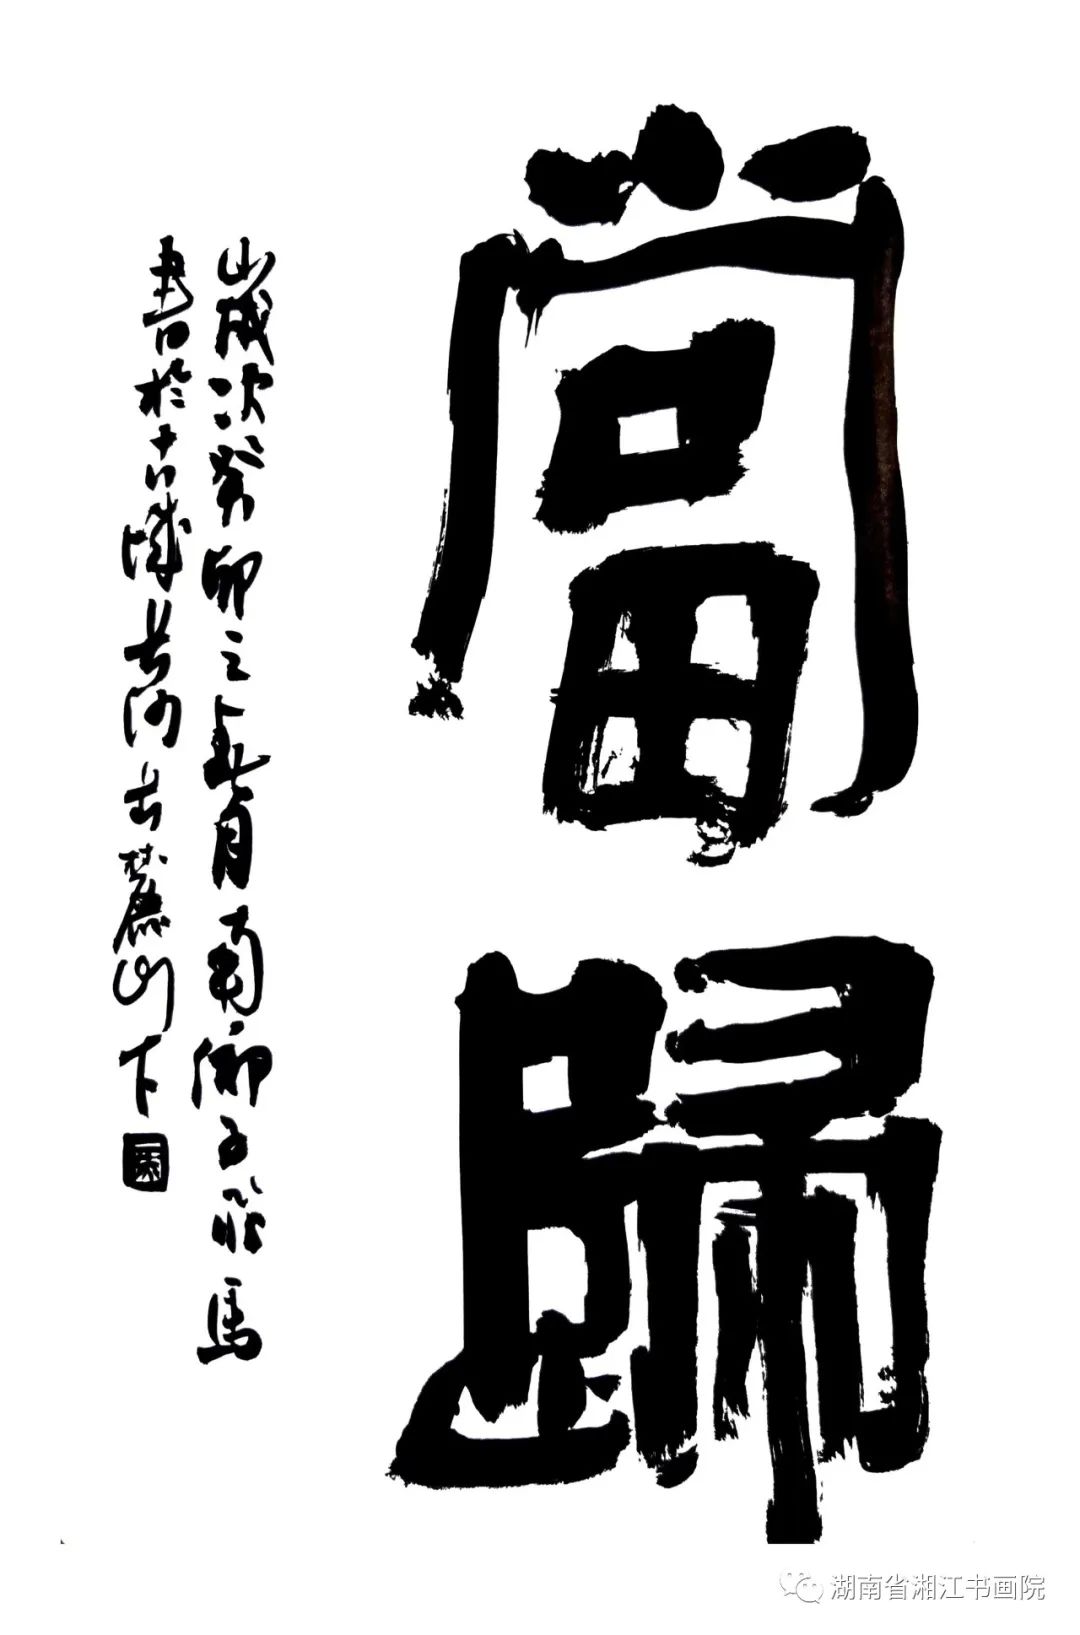 當歸
歲次癸卯之春月南鄉子范馬
書於古城長沙古麓山下
湖南省湘江书画院